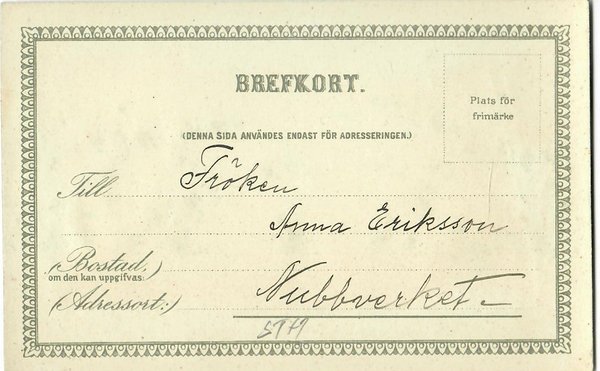 BREFKORT.
Plats för
frimärke
(DENNA SIDA ANVÄNDES ENDAST FÖR ADRESSERINGEN.)
Till Fröken
Anna Eriksson
(Bostad,)
om den kan uppgifvas:
(Adressort:) Nubbverket